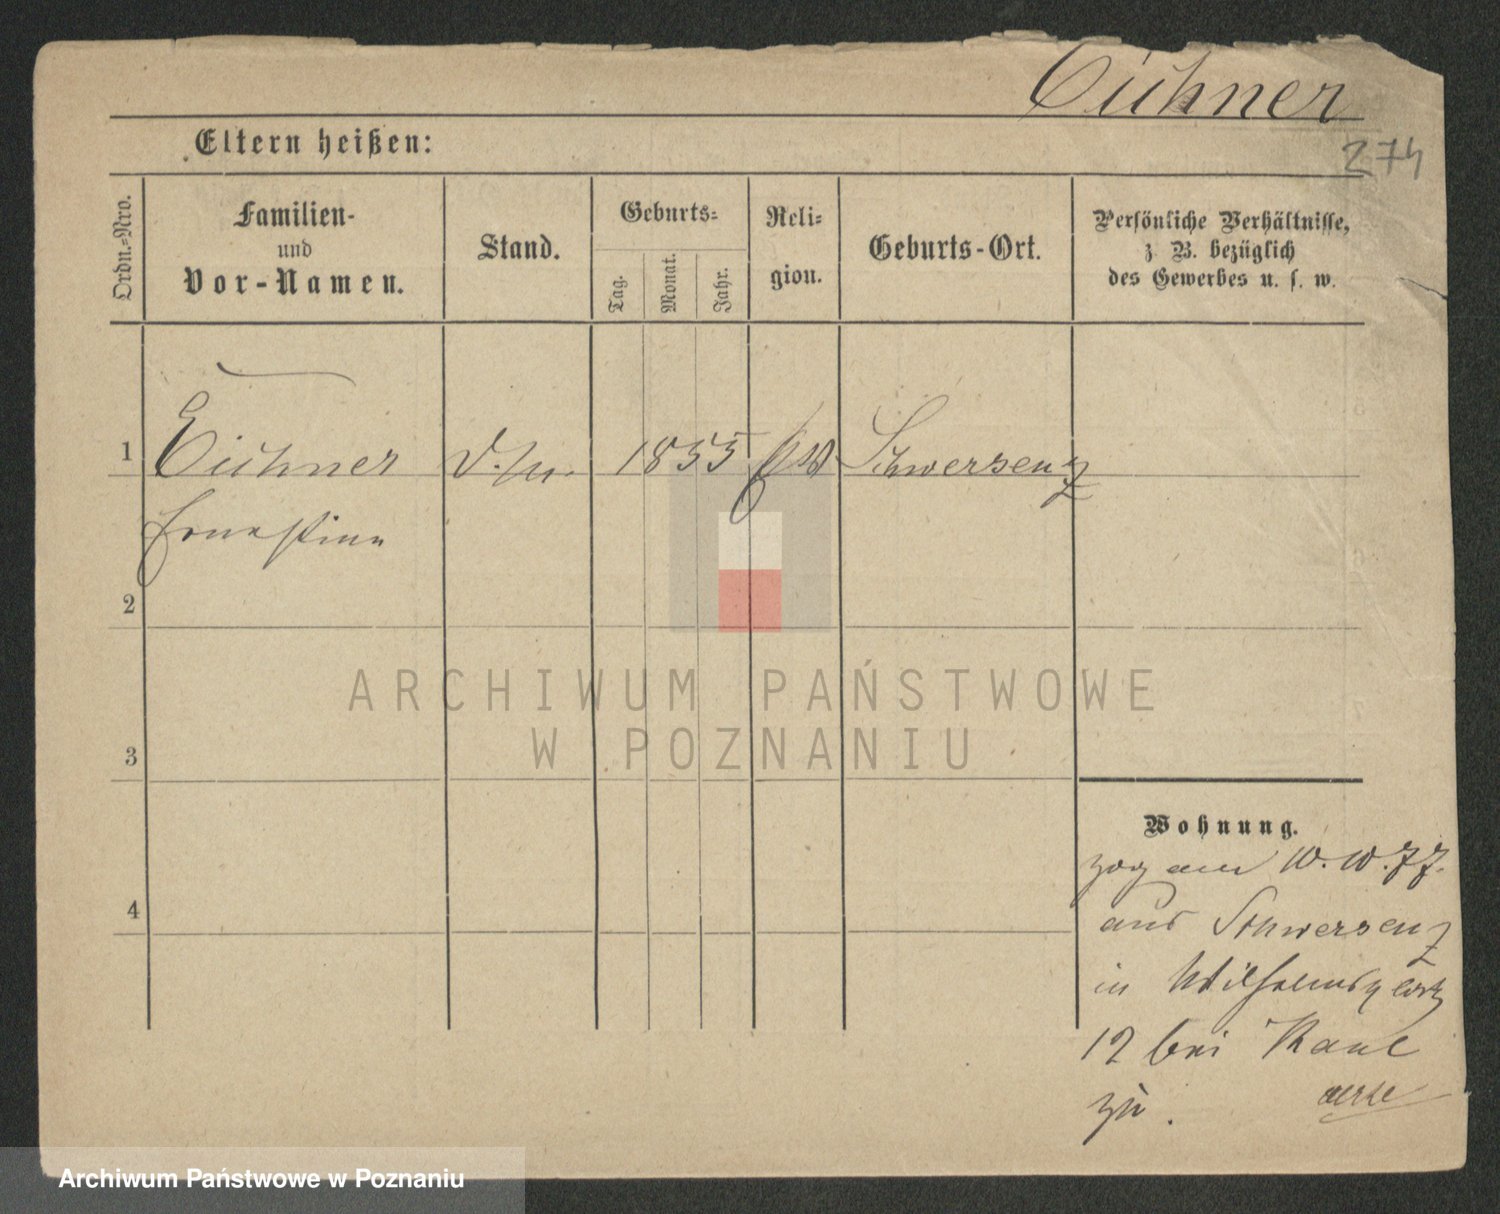 Eichner
274
Eltern heißen:
Ordn.-Nro.
Familien-
und
Vor-Namen.
Stand.
Geburts-
Tag.
Monat.
Jahr.
Reli-
gion.
Geburts-Ort.
Persönliche Verhältnisse,
z. B. bezüglich
des Gewerbes u. s. w.
1
Eichner
1855
Schwersenz
Ernestine
2
3
4
Wohnung.
zog am 10.10.77.
aus Schwersenz
in Wilhelmsplatz
12 bei
zu.
ARCHIWUM PAŃSTWOWE
W POZNANIU
Archiwum Państwowe w Poznaniu